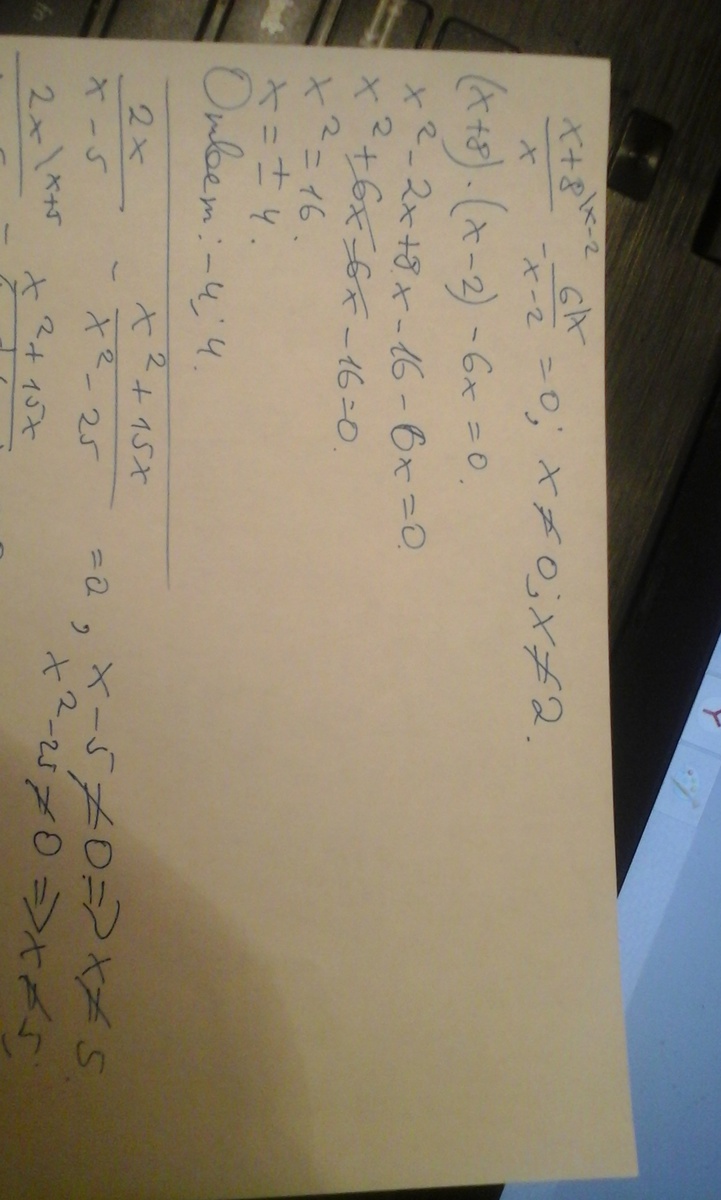 x+8\x-2 / x - 6\x / x-2 = 0; x≠0; x≠2.
(x+8)·(x-2)-6x=0.
x²-2x+8x-16-6x=0.
x²+6x-6x-16=0.
x²=16.
x=±4.
Ответ: -4; 4.
2x / x-5 - x²+15x / x²-25 = 0, x-5≠0=>x≠5
x²-25≠0=>x≠5
2x\x+5 - x²+15x